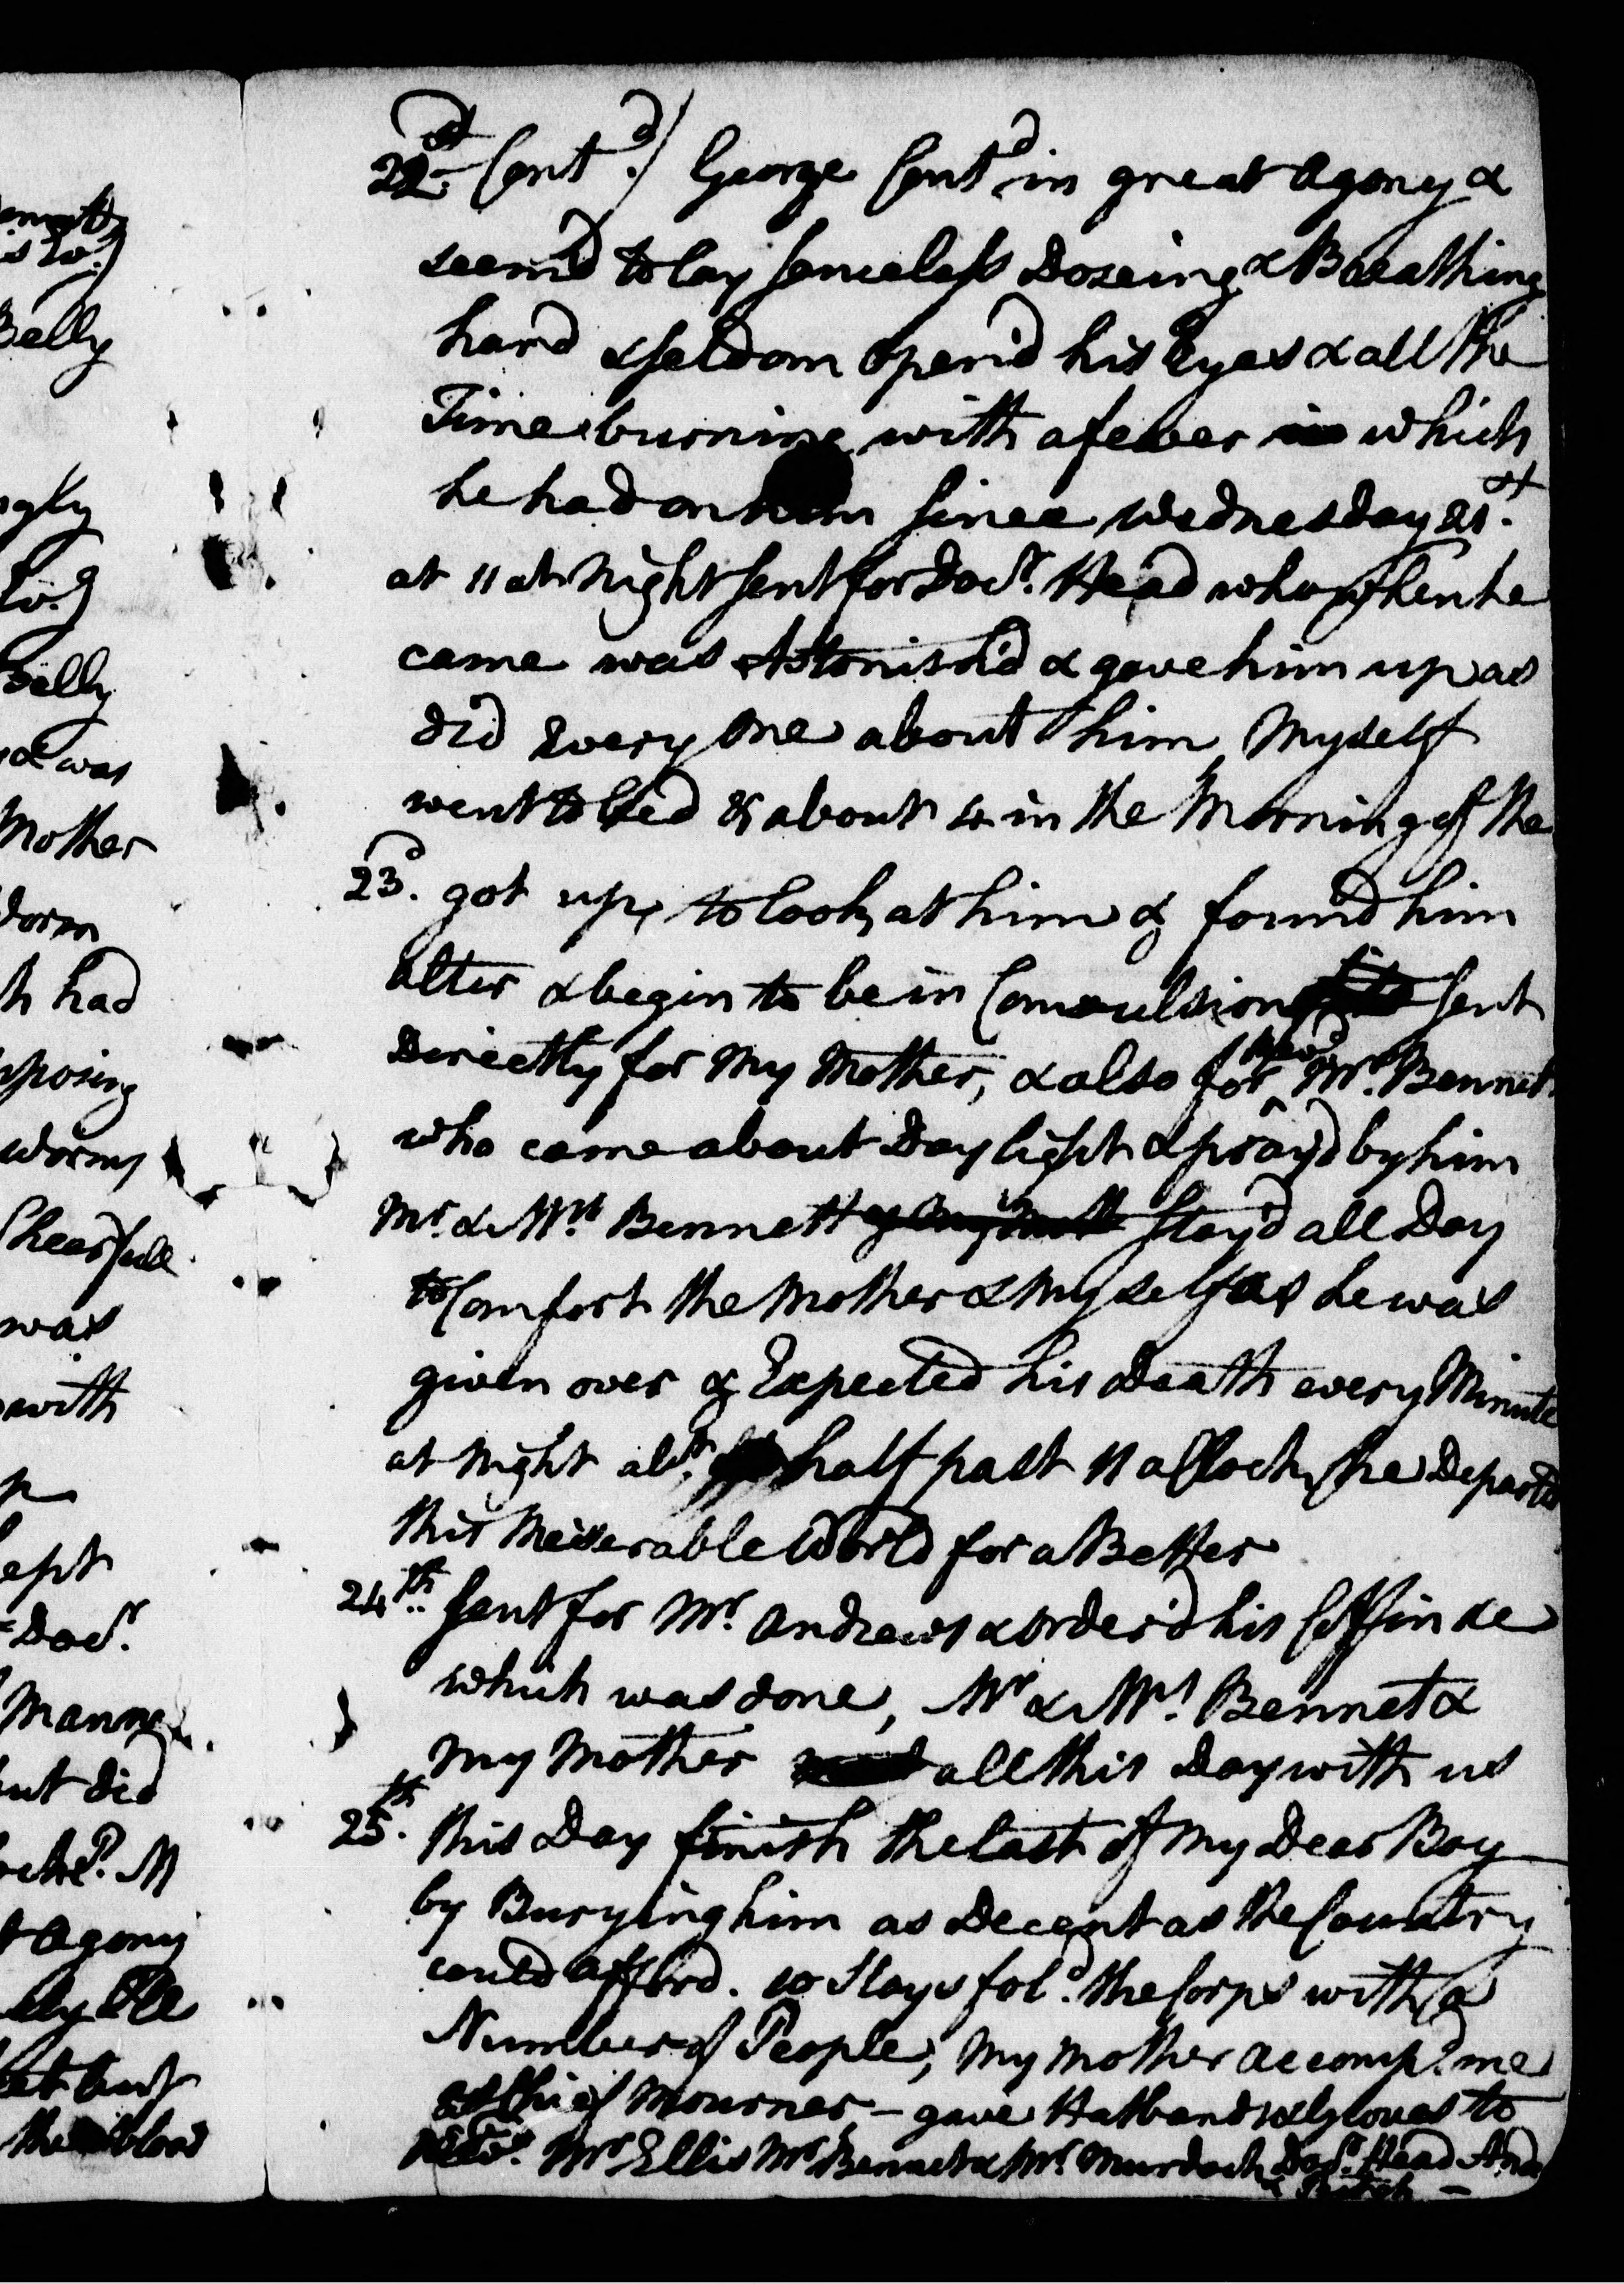 emat
Belly
gly
Belly
& was
Mother
worm
h had
pposing
worms
Chearfull
was
with
ept
Docr.
Manner
ut did
M
t agony
ly Ill
but
the blood
22d Contd.) George Contd in great agony &
seem'd to lay senceless Dozeing & Breathing
hard & seldom open'd his Eyes & all the
Time burning with a fever which
he had on him since Wednesday 21st.
at 11 at Night sent for Docr. Head who when he
came was Astonish'd & gave him up as
did Every one about him Myself
went to bed & about 4 in the Morning of the
23d. got up to look at him & found him
alter & begin to be in Convulsion fits sent
Directly for My Mother, & also for Revd Mr. Bennet
who came about Day light & pray'd by him
Mr. & Mrs. Bennett stay'd all Day
to Comfort the Mother & Myself as he was
given over & Expected his Death every Minute
at Night abt. half past 11 a Clock he Departd
this Meserable World for a Better
24th. sent for Mr. Andrews & order'd his Coffin &c
which was done, Mr. & Mrs. Bennet &
my Mother all this Day with us
25th. this Day finish the last of my Dear Boy
by Burying him as Decent as the Country
could afford. 10 Slays fold. the Corps with a
Number of People, my mother accompd. me
as Chief Mourner, - gave Hatbands & Gloves to
Revd. Mr. Ellis Mr. Bennet & Mr. Murdoch Docr. Head And